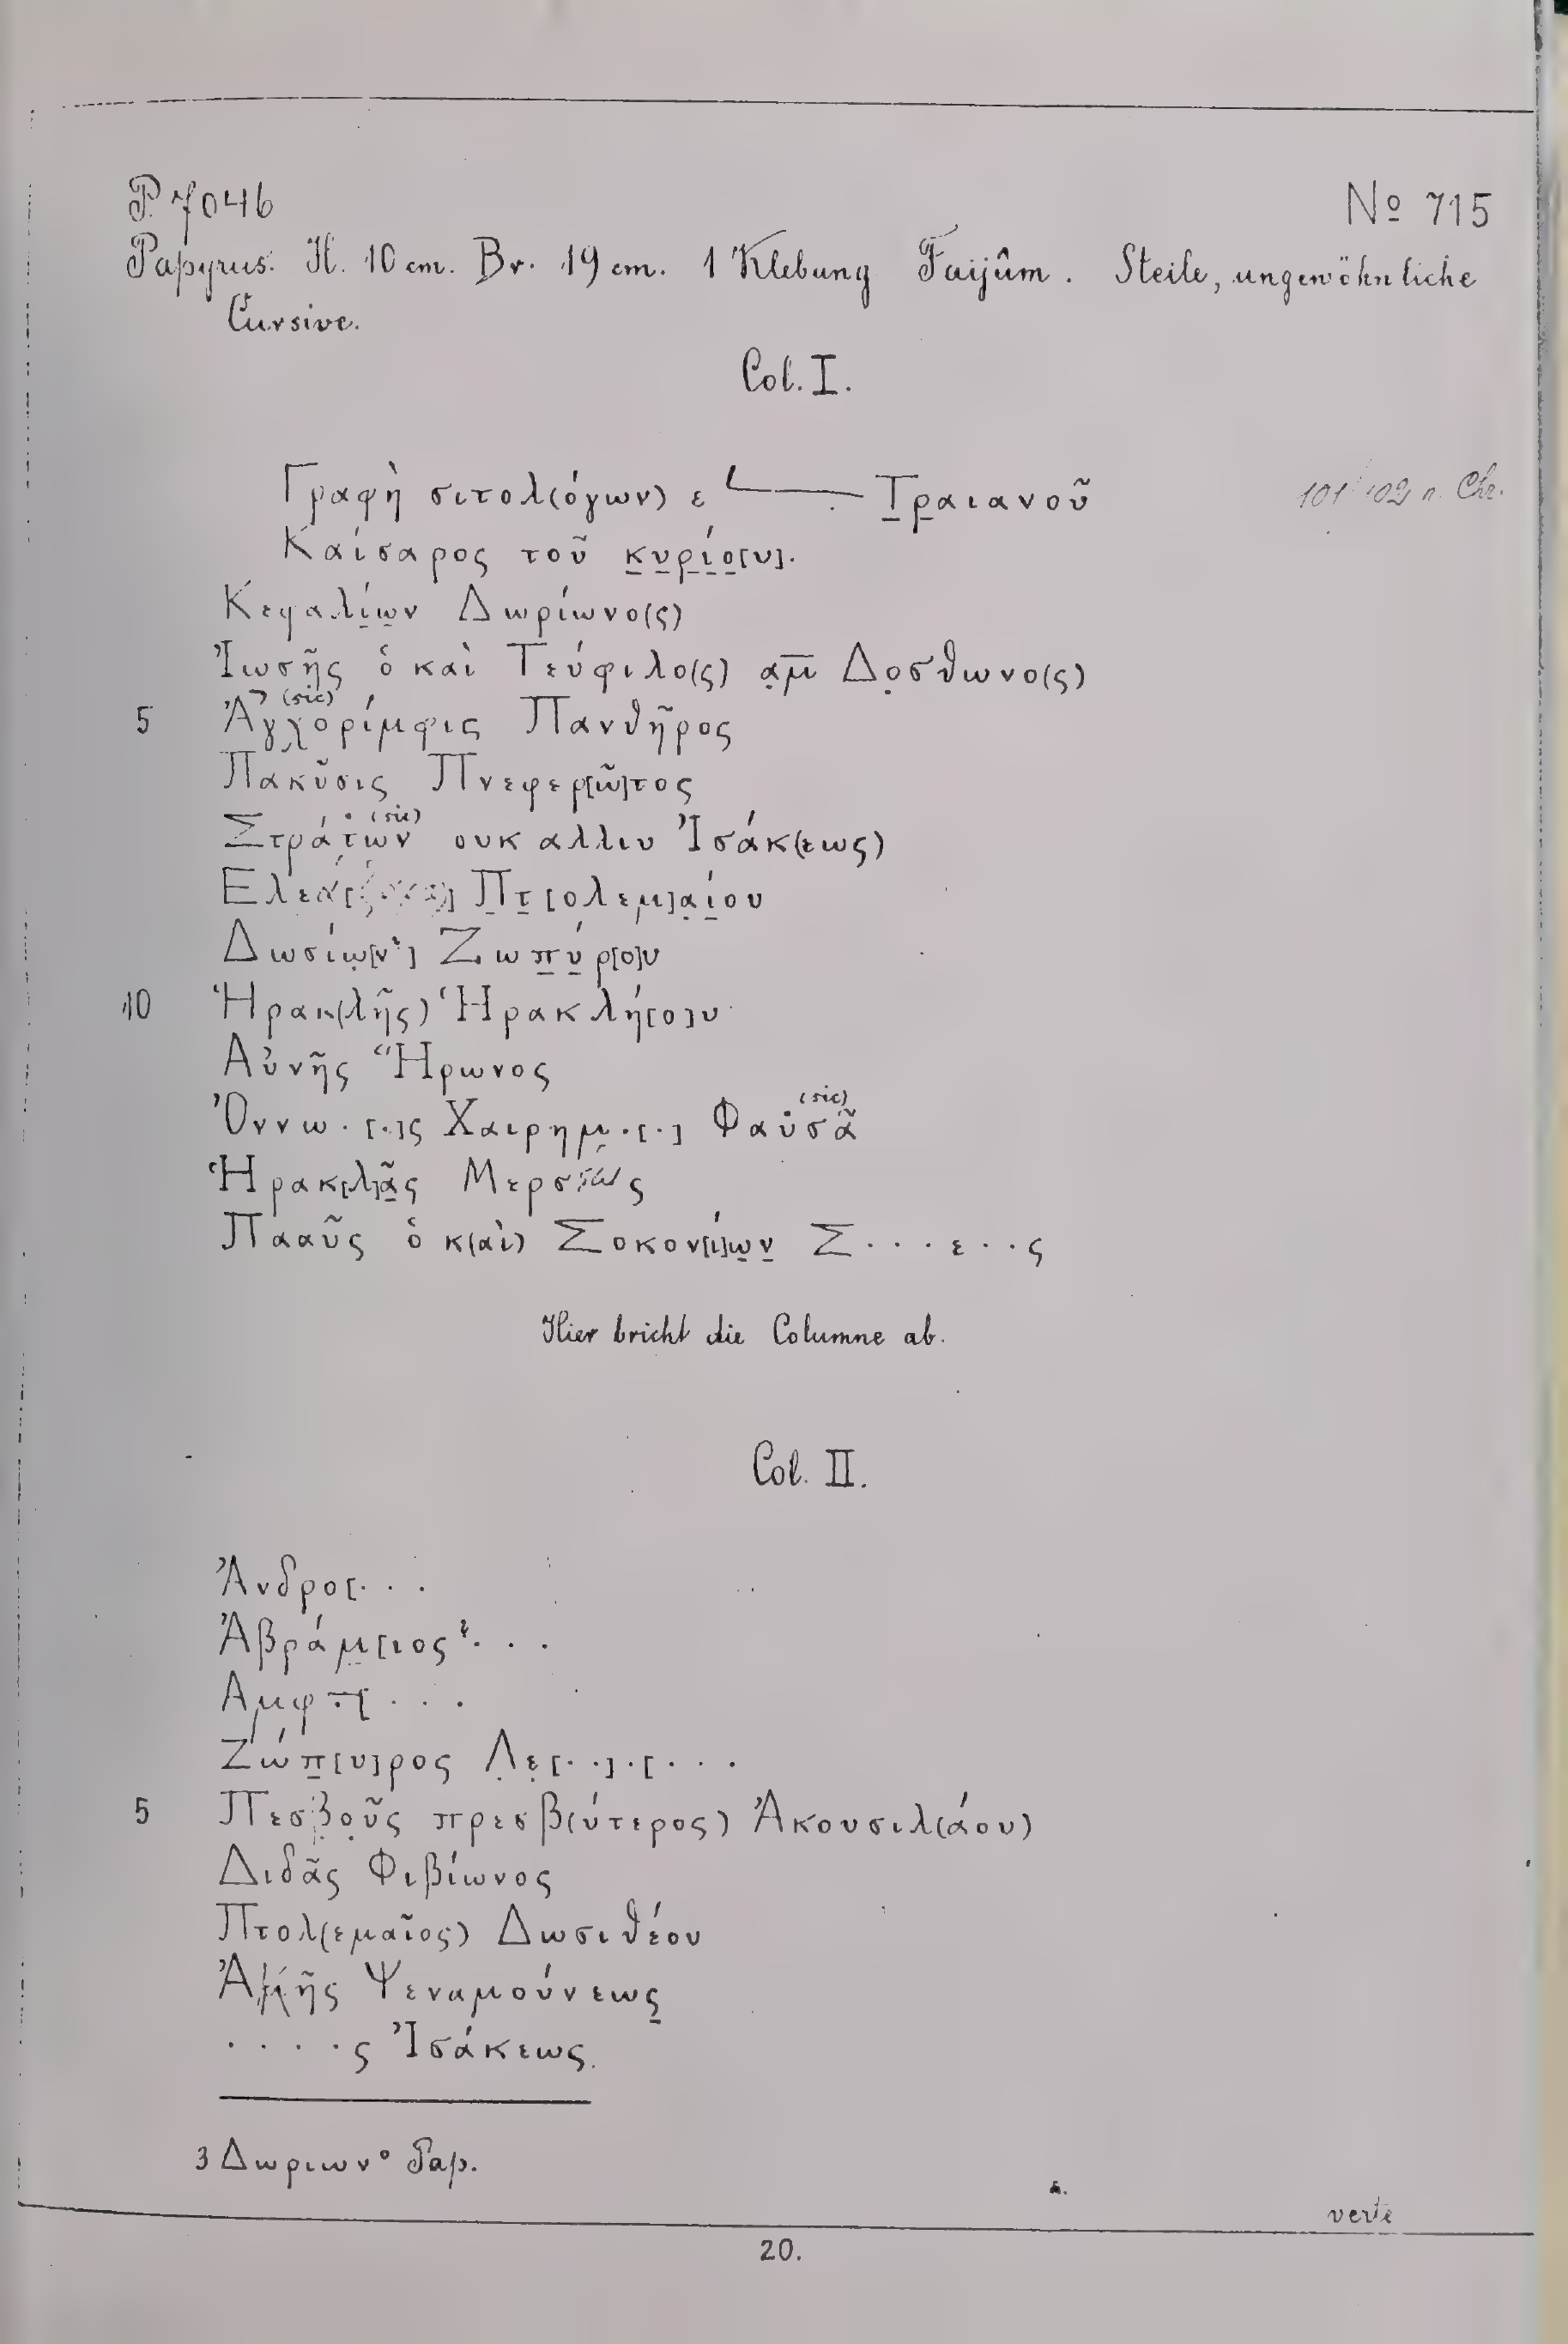 P. 7046
No 715
Papyrus. H. 10 cm. Br. 19 cm. 1 Klebung Faijûm. Steile, ungewöhnliche
Cursive.
Col. I.
Γραφὴ σιτολ(όγων) ε Τ̣ρ̣αιανοῦ
101/102 n. Chr.
Καίσαρος τοῦ κ̣υ̣ρ̣ί̣ο̣[υ].
Κεφαλί̣ω̣ν Δωρίωνο(ς)
Ἰωσῆς ὁ καὶ Τεύφιλο(ς) α̣μ̅ Δο̣σθωνο(ς)
(sic)
5 Ἀγχορίμφις Πανθῆρος
Πακῦσις Πνεφερ[ῶ]τος
(sic)
Στράτ̣ων ουκ αλλιυ Ἰσάκ(εως)
Ελεά[ Π̣τ̣[ολεμ]α̣ί̣ου
Δωσίω̣[ν?] Ζωπ̣ύ̣ρ[ο]υ
10 Ἡρακ(λῆς) Ἡρακλή[ο]υ
Αὐνῆς Ἥρωνος
(sic)
Ὀννω.[.]ς Χαιρημ̣.[.] Φαὐσᾶ
Ἡρακ[λ]ᾶ̣ς
Πααῦς ὁ κ(αὶ) Σοκον[ί]ω̣ν̣ Σ...ε..ς
Hier bricht die Columne ab.
Col. II.
Ἀνδρο[...
Ἀβράμ̣[ιος?...
Αμφτ̣[...
Ζώπ̣[υ]ρος Λ̣ε̣[..].[...
5 Πεσβ̣ο̣ῦς πρεσβ(ύτερος) Ἀκουσιλ(άου)
Διδᾶς Φιβίωνος
Πτολ(εμαῖος) Δωσιθέου
Ψεναμούνεως̣
....ς Ἰσάκεως.
3 Δωριωνο Pap.
verte
20.